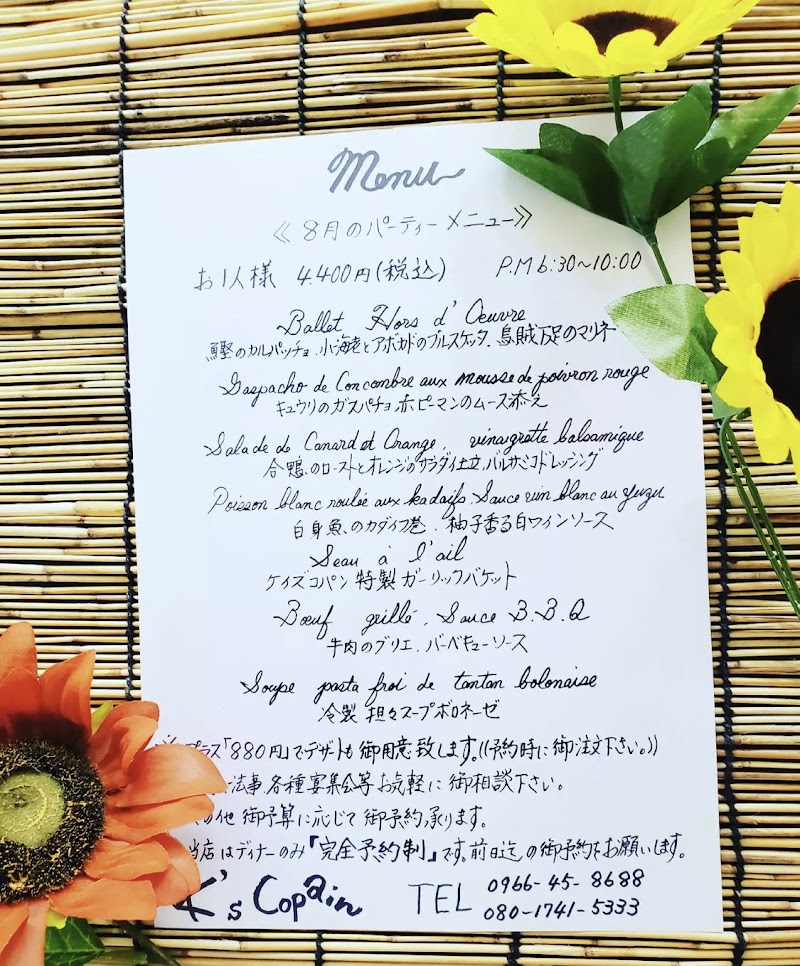 Menu
≪8月のパーティーメニュー≫
お1人様 4.400円(税込) P.M 6:30~10:00
Ballet Hors d'Oeuvre
鰹のカルパッチョ、小海老とアボカドのブルスケッタ、烏賊足のマリネ
Gaspacho de Concombre aux mousse de poivron rouge
キュウリのガスパチョ 赤ピーマンのムース添え
Salade de Canard et Orange, vinaigrette balsamique
合鴨のローストとオレンジのサラダ仕立、バルサミコドレッシング
Poisson blanc roulée aux kadaifs, Sauce vin blanc au yuzu
白身魚のカダイフ巻、柚子香る白ワインソース
Seau à l'ail
ケイズコパン特製ガーリックバケット
Bœuf grillé, Sauce B.B.Q
牛肉のグリエ、バーベキューソース
Soupe pasta froi de tantan bolonaise
冷製 担々スープボロネーゼ
プラス「880円」でデザートも御用意致します。((予約時に御注文下さい。))
法事、各種宴集会等お気軽に御相談下さい。
の他 御予算に応じて御予約承ります。
当店はディナーのみ『完全予約制』です。前日迄の御予約をお願いします。
K's Copain TEL 0966-45-8688
080-1741-5333